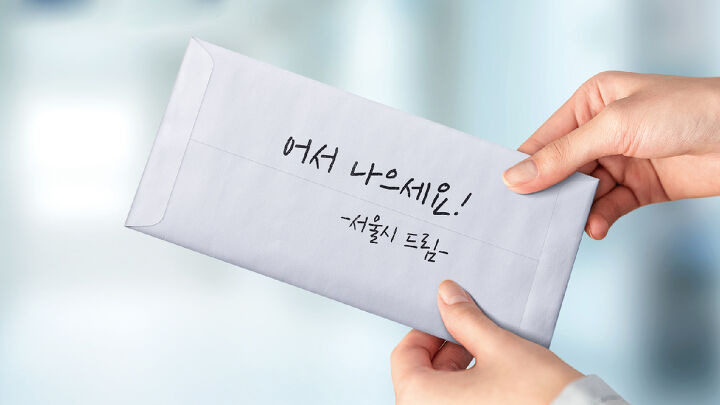 어서 나으세요!
-서울시 드림-